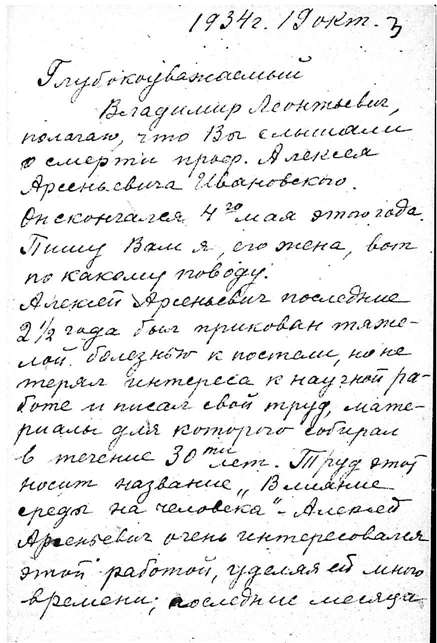 1934г. 19 окт.
Глубокоуважаемый
Владимир Леонтьевич,
полагаю, что Вы слышали
о смерти проф. Алексея
Арсеньевича Ивановского.
Он скончался 4го мая этого года.
Пишу Вам я, его жена, вот
по какому поводу.
Алексей Арсеньевич последние
2 1/2 года был прикован тяже-
лой болезнью к постели, но не
терял интереса к научной ра-
боте и писал свой труд, мате-
риалы для которого собирал
в течение 30ти лет. Труд этот
носит название „Влияние
среды на человека“ - Алексей
Арсеньевич очень интересовался
этой работой, уделял ей много
времени; последние месяца